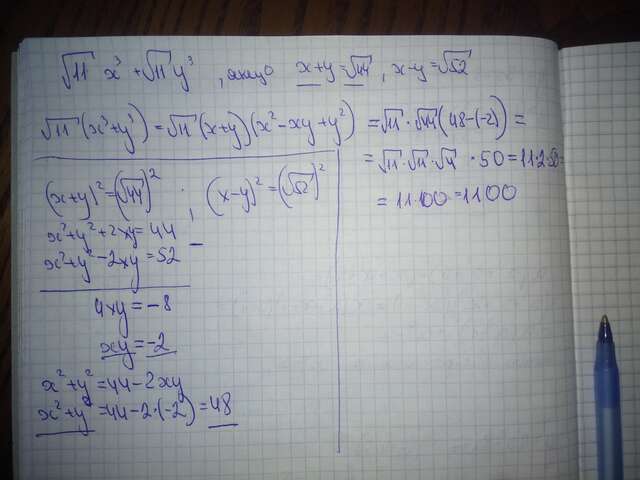 √11 x³ + √11 y³ , якщо x+y = √44 , x-y = √52
√11 (x³+y³) = √11 (x+y)(x²-xy+y²) = √11 · √44 (48-(-2)) =
= √11 · √11 · √4 · 50 = 11·2·50 =
= 11·100 = 1100
(x+y)² = (√44)² ; (x-y)² = (√52)²
x²+y²+2xy = 44
x²+y²-2xy = 52
4xy = -8
xy = -2
x²+y² = 44-2xy
x²+y² = 44-2·(-2) = 48